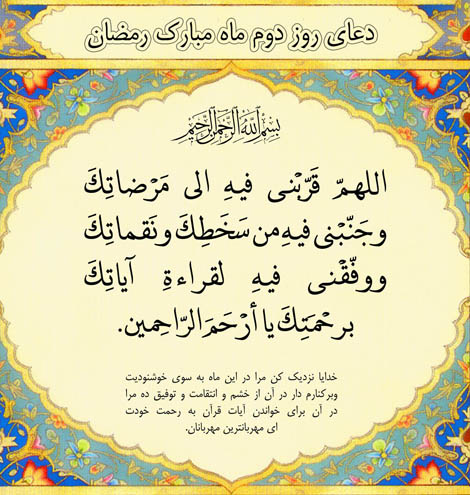 دعای روز دوم ماه مبارک رمضان
بِسْمِ اللهِ الرَّحْمنِ الرَّحیمِ
اللهمّ قَرّبْنی فیهِ الی مَرْضاتِكَ
وجَنّبْنی فیهِ من سَخَطِكَ ونَقماتِكَ
ووفّقْنی فیهِ لقراءةِ آیاتِكَ
برحْمَتِكَ یا أرْحَمَ الرّاحِمین.
خدایا نزدیک کن مرا در این ماه به سوی خوشنودیت
وبرکنارم دار در آن از خشم و انتقامت و توفیق ده مرا
در آن برای خواندن آیات قرآن به رحمت خودت
ای مهربانترین مهربانان.